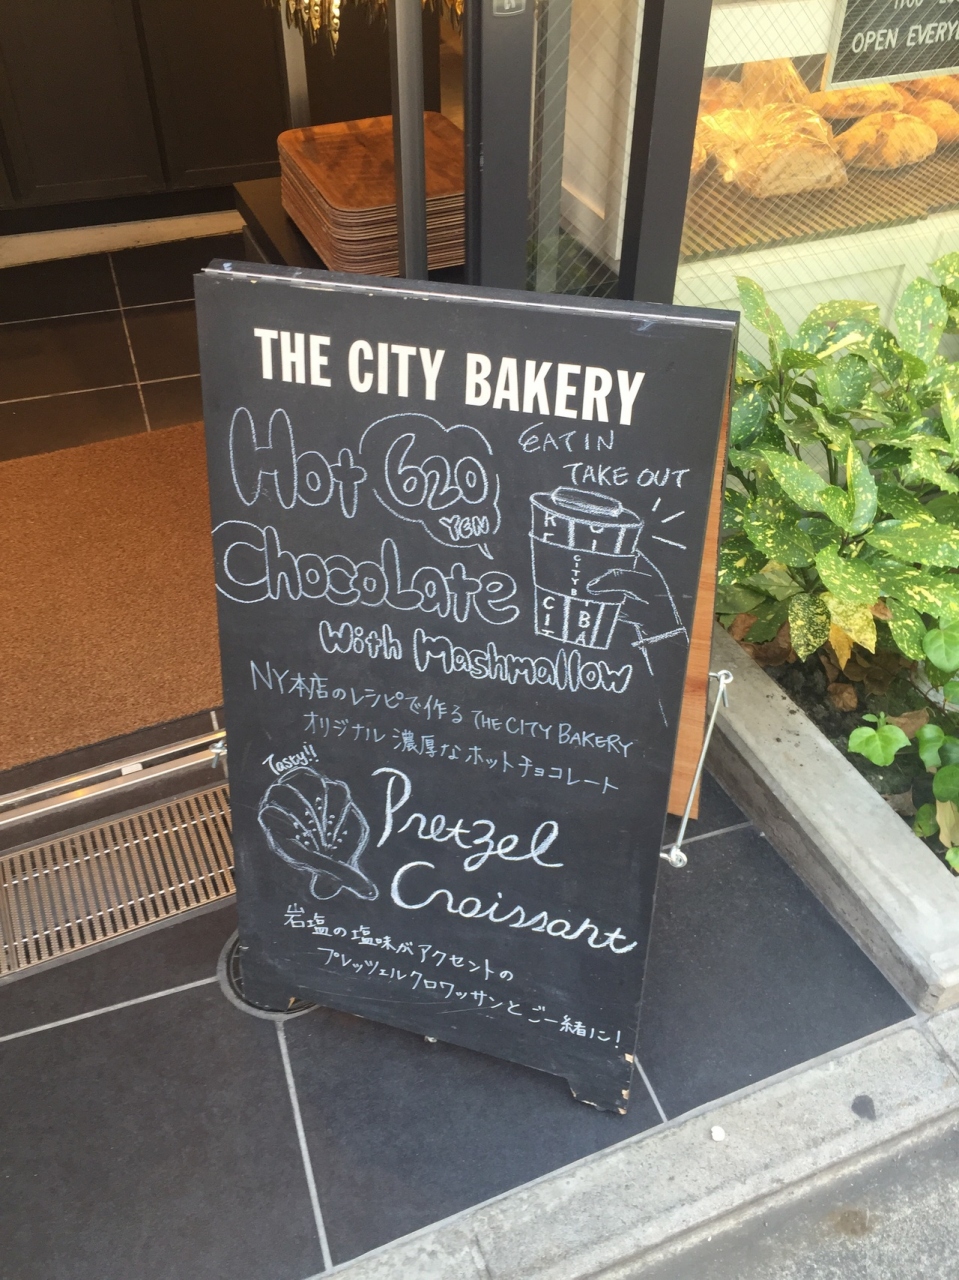 OPEN EVERY
THE CITY BAKERY
Hot 620 YEN
EAT IN
TAKE OUT
Chocolate
With Mashmallow
NY本店のレシピで作る THE CITY BAKERY
オリジナル 濃厚なホットチョコレート
Tasty!!
Pretzel
Croissant
岩塩の塩味がアクセントの
プレッツェルクロワッサンとご一緒に!